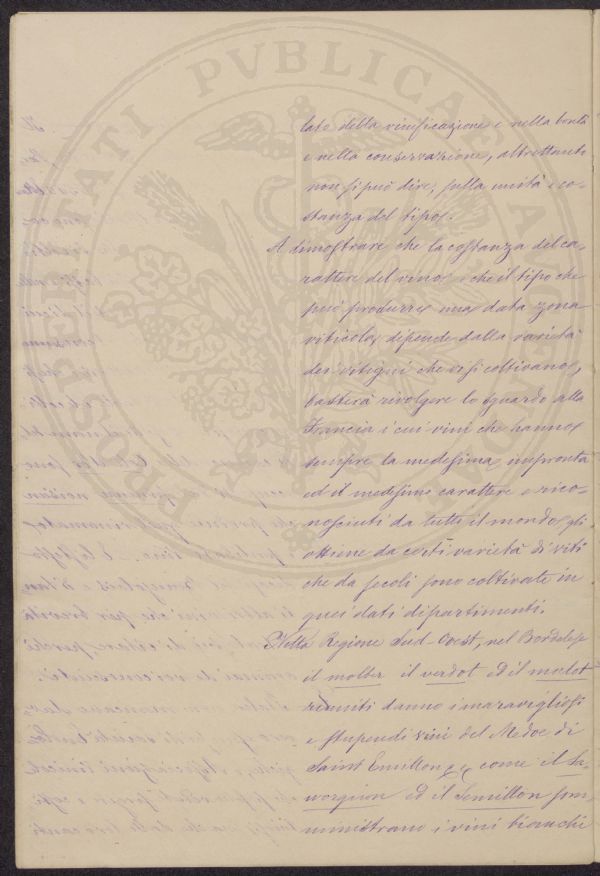 PROSPERITATI PVBLICAE AVGENDAE
lato della vinificazione e nella bontà
e nella conservazione, altrettanto
non si può dire, sulla unità e co-
stanza del tipo.
A dimostrare che la costanza del ca-
rattere del vino, e che il tipo che
può produrre una data zona
viticola, dipende dalla varietà
dei vitigni che vi si coltivano,
basterà rivolgere lo sguardo alla
Francia i cui vini che hanno
sempre la medesima impronta
ed il medesimo carattere e rico-
nosciuti da tutto il mondo, gli
ottiene da certi varietà di viti
che da secoli sono coltivate in
quei dati dipartimenti.
Nella Regione Sud-Ovest, nel Bordolese
il molbec il verdot ed il merlot
riuniti danno i maravigliosi
e stupendi vini del Medoc di
Saint Emillon, come il Sa-
vorgnion ed il Semillon som-
ministrano i vini bianchi